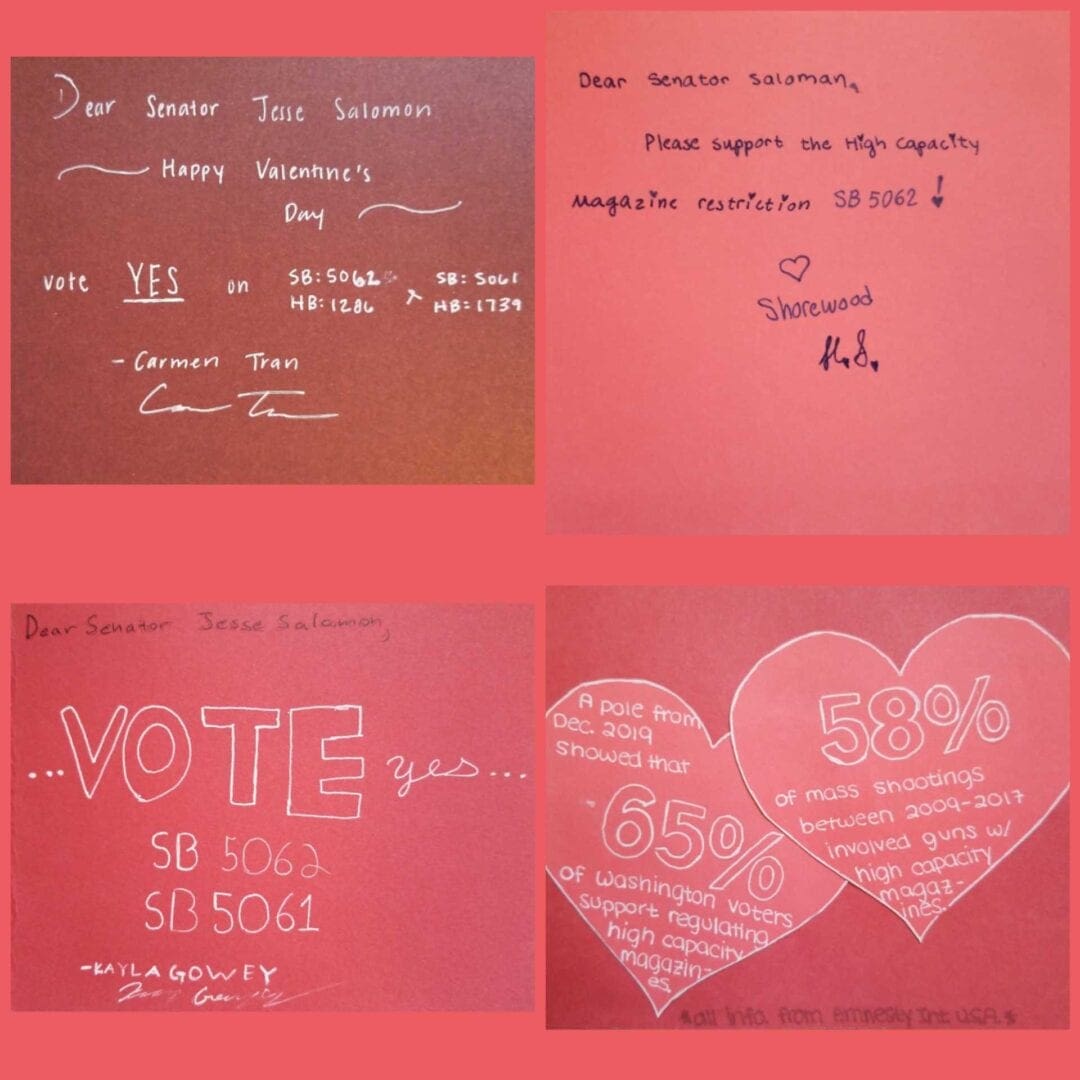 Dear Senator Jesse Salomon
Happy Valentine's
Day
vote YES on SB:5062 SB: 5061
HB:1286 HB:1739
- Carmen Tran
Dear Senator Saloman,
Please support the High Capacity
Magazine restriction SB 5062!
Shorewood
H.S.
Dear Senator Jesse Salomon,
...VOTE yes...
SB 5062
SB 5061
-KAYLA GOWEY
A pole from
Dec. 2019
showed that
65%
of Washington voters
support regulating
high capacity
magazin-
es.
58%
of mass shootings
between 2009-2017
involved guns w/
high capacity
magaz-
ines.
*all info. from Amnesty Int USA.*